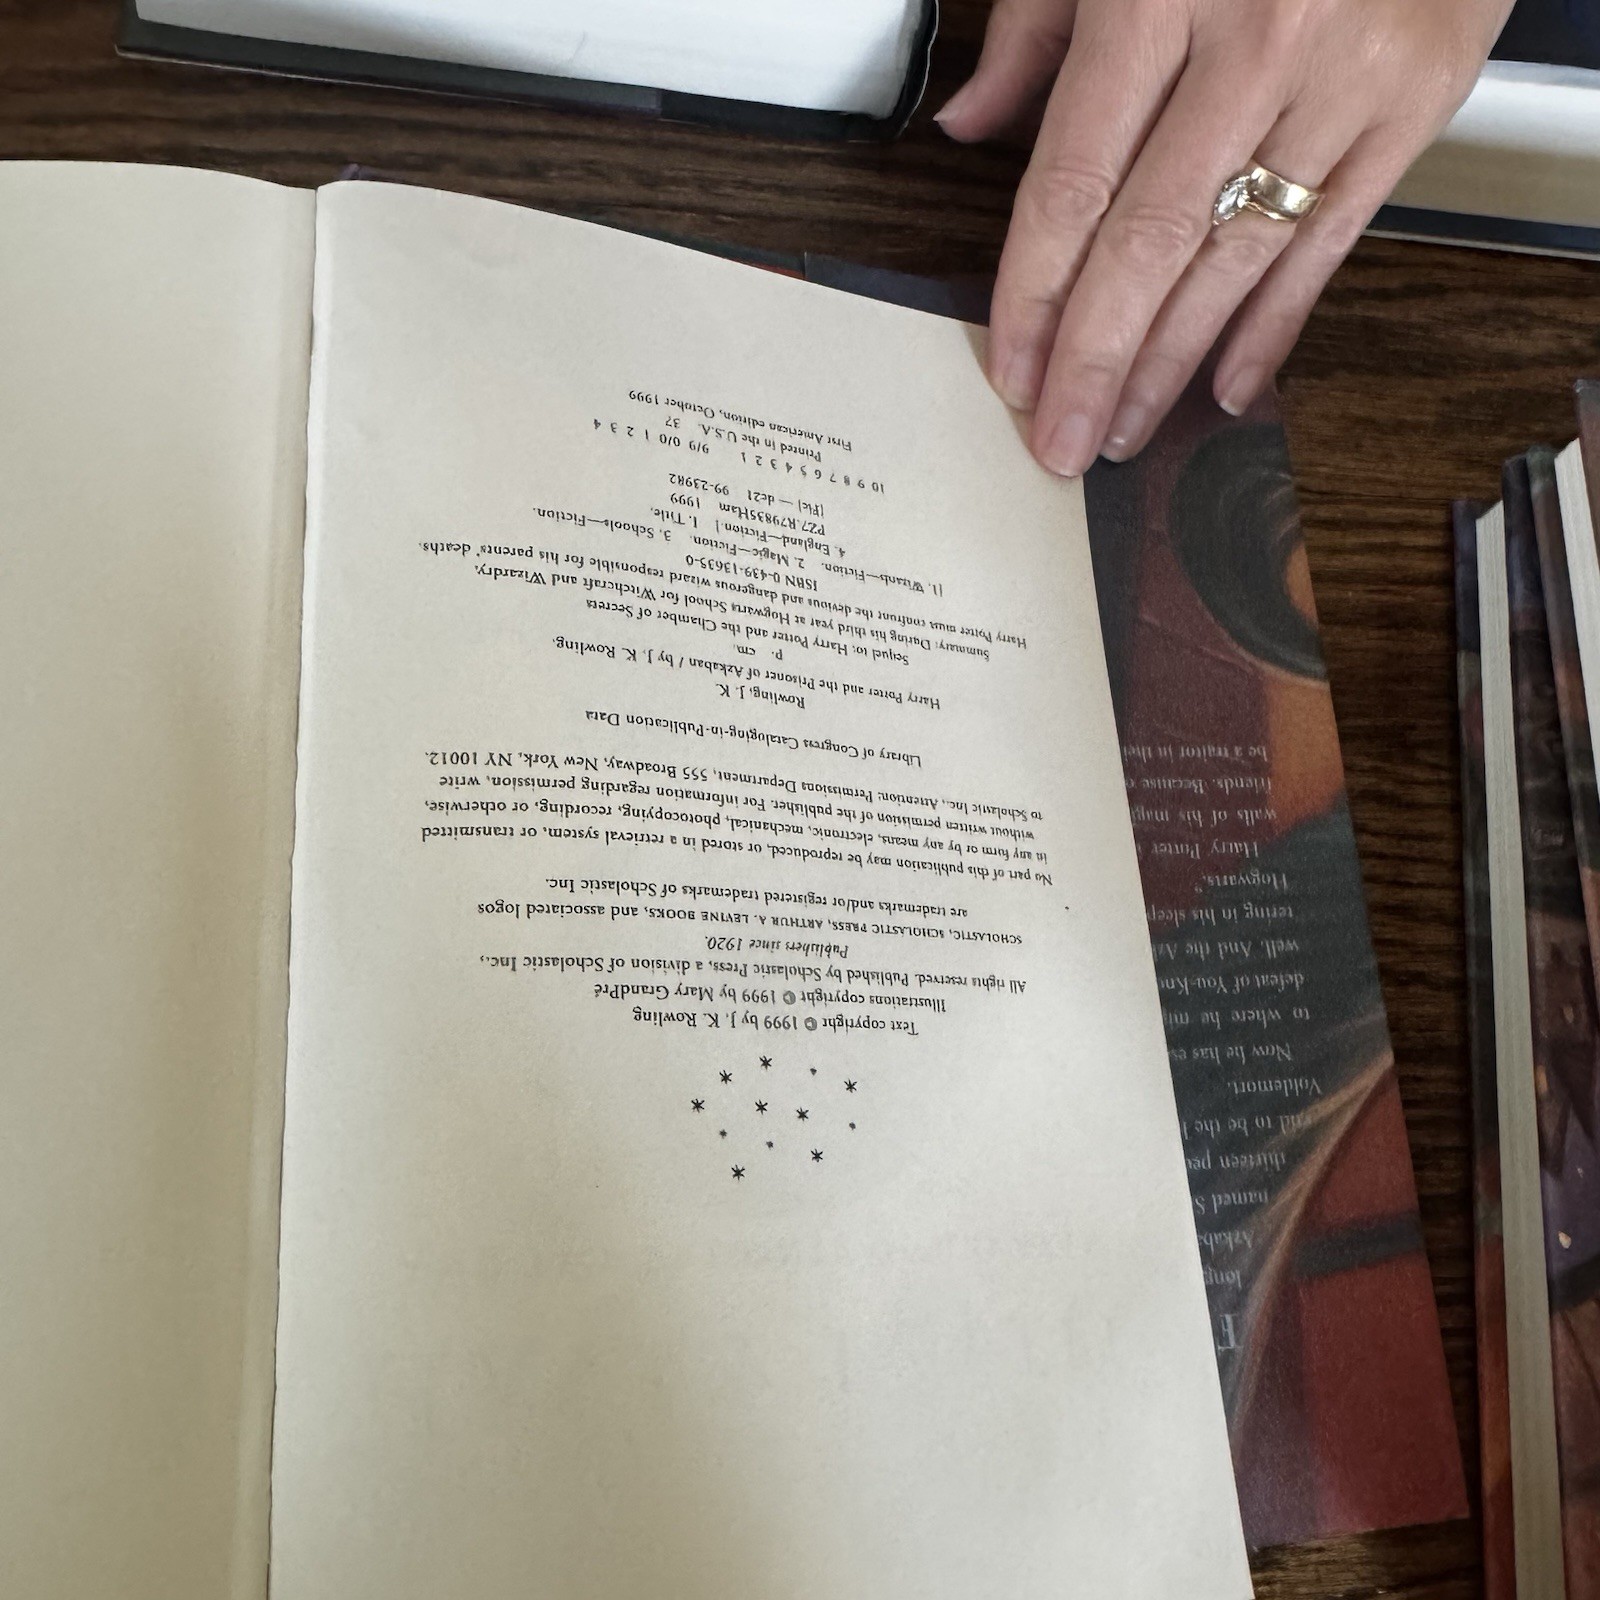 Text copyright © 1999 by J. K. Rowling
Illustrations copyright © 1999 by Mary GrandPré
All rights reserved. Published by Scholastic Press, a division of Scholastic Inc.,
Publishers since 1920.
SCHOLASTIC, SCHOLASTIC PRESS, ARTHUR A. LEVINE BOOKS, and associated logos
are trademarks and/or registered trademarks of Scholastic Inc.
No part of this publication may be reproduced, or stored in a retrieval system, or transmitted
in any form or by any means, electronic, mechanical, photocopying, recording, or otherwise,
without written permission of the publisher. For information regarding permission, write
to Scholastic Inc., Attention: Permissions Department, 555 Broadway, New York, NY 10012.
Library of Congress Cataloging-in-Publication Data
Rowling, J. K.
Harry Potter and the Prisoner of Azkaban / by J. K. Rowling.
p. cm.
Sequel to: Harry Potter and the Chamber of Secrets
Summary: During his third year at Hogwarts School for Witchcraft and Wizardry,
Harry Potter must confront the devious and dangerous wizard responsible for his parents' deaths.
ISBN 0-439-13635-0
[1. Wizards—Fiction. 2. Magic—Fiction. 3. Schools—Fiction.
4. England—Fiction.] I. Title.
PZ7.R79835Ham 1999
[Fic] — dc21 99-23982
10 9 8 7 6 5 4 3 2 1 9/9 0/0 1 2 3 4
Printed in the U.S.A. 37
First American edition, October 1999
F
long
Azkaba
named S
thirteen peo
said to be the
Voldemort.
Now he has es
to where he mi
defeat of You-Kn
well. And the Az
tering in his sleep
Hogwarts."
Harry Potter
walls of his magi
friends. Because
be a traitor in thei